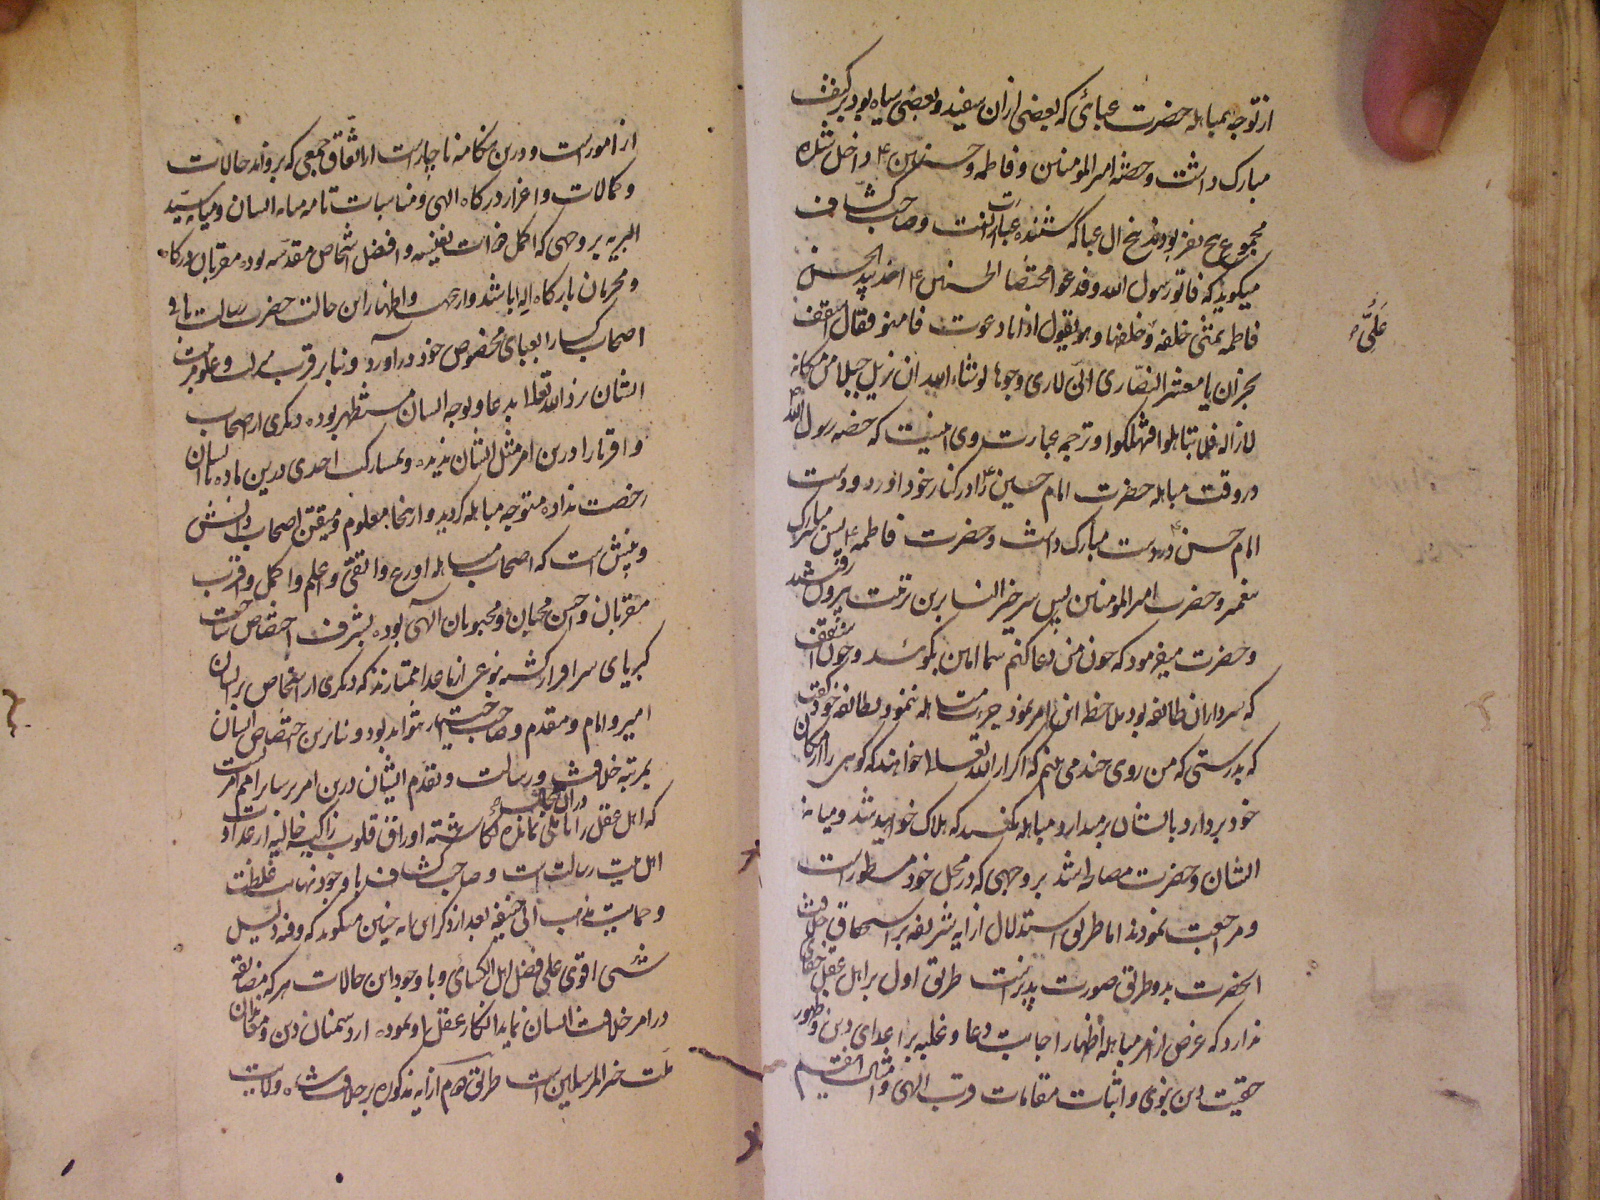 از توجه بمباهله حضرت عبائی که بعضی ازان سفید و بعضی سیاه بود بر کتف
مبارک داشت و حضرت امیر المومنین و فاطمه و حسنین ع داخل شده
مجموع پنج نفر بودند پنج ال عبا که شنیده عبارت
و صاحب کشاف
میگوید که فاتو رسول الله وقد غدا محتضنا الحسین ع اخذ بید الحسن
فاطمه تمشی خلفه و خلفها و هو یقول اذا انا دعوت فامنو فقال اسقف
علی
نجران یا معشر النصاری انی لاری وجوها لو شاء الله ان یزیل جبلا من مکانه
لازاله فلا تباهلوا فتهلکوا و ترجمه عبارت وی اینست که حضرت رسول الله
در وقت مباهله حضرت امام حسین را در کنار خود اورد و دست
امام حسن در دست مبارک داشت و حضرت فاطمه ع پس سر مبارک
پیغمبر و حضرت امیر المومنین پس سر خیر النسا برین ترتیب بیرون
و حضرت میفرمود که چون من دعا کنم شما امین بگوئید و چون اسقف
که سردار ان طائفه بود ملاحظه این امر نمود جرءت مباهله ننمود بطائفه خود گفت
که بدرستی که من روی چند می بینم که اگر از الله تعالی خواهند که کوهی را از مکان
خود بردارد بالتشان برمیدارد مباهله مکنید که هلاک خواهید شد و میانه
ایشان و حضرت مصالحه شد بر وجهی که در محل خود مسطور است
و مراجعت نمودند اما طریق استدلال از ایه شریفه بر استحقاق خلافت
انحضرت بدو طریق صورت پذیر است طریق اول بر اهل عقل خفائی
ندارد که غرض از امر مباهله اظهار اجابت دعا و غلبه بر اعدای دین و ظهور
حقیت دین نبوی و اثبات مقامات قرب الهی و امثال
از امور است و درین هنکامه ناچار است از اتفاق جمعی که بر وفاق حالات
و کمالات و اعزاز درگاه الهی و مناسبات تامه میانه ایشان و میانه سید
البریه بر وجهی که اکمل ذوات نفیسه و افضل اشخاص مقدسه بوده مقربان درگاه
و محرمان بارگاه اله باشد و از جهت اظهار این حالت حضرت رسالت پناهی
اصحاب کسا را بعبای مخصوص خود درآورد و بنابر قرب منزلت و علو مرتبت
ایشان نزد الله تعالی بدعا و توجه ایشان مستظهر بوده دیگری از اصحاب
و اقربا را درین امر مثل ایشان ندیده و بمشارکت احدی درین ماده با ایشان
رخصت نداده متوجه مباهله گردید و از اینجا معلوم و متیقن اصحاب دانش
و بینش است که اصحاب مباهله اورع و اتقی و اعلم و اکمل و اقرب
مقربان و احسن محبان و محبوبان الهی بوده بشرف اختصاص ساحت
کبریای سرافراز گشته نوعی از ماعدا ممتازند که دیگری از اشخاص بر ایشان
امیر و امام و مقدم و صاحب اختیار نتواند بود و بنابرین اختصاص ایشان
بمرتبه خلافت و رسالت و تقدم ایشان درین امر بر سایر امم
که اهل عقل را تاملی نمانده نگاشته اوراق قلوب زاکیه خالیه از عداوت
اهل بیت رسالت است و صاحب کشاف با وجود نهایت غلظت
و حمایت مذهب ابی حنیفه بعد از ذکر این ایه چنین میگوید که وفیه دلیل
شئی اقوی علی فضل اهل الکسای و با وجود این حالات هر که مضایقه
در امر خلافت ایشان نماید انکار عقل نموده از دشمنان دین و مخالفان
ملت خیر المرسلین است طریق دوم از ایه مذکوره بر خلافت شاه ولایت